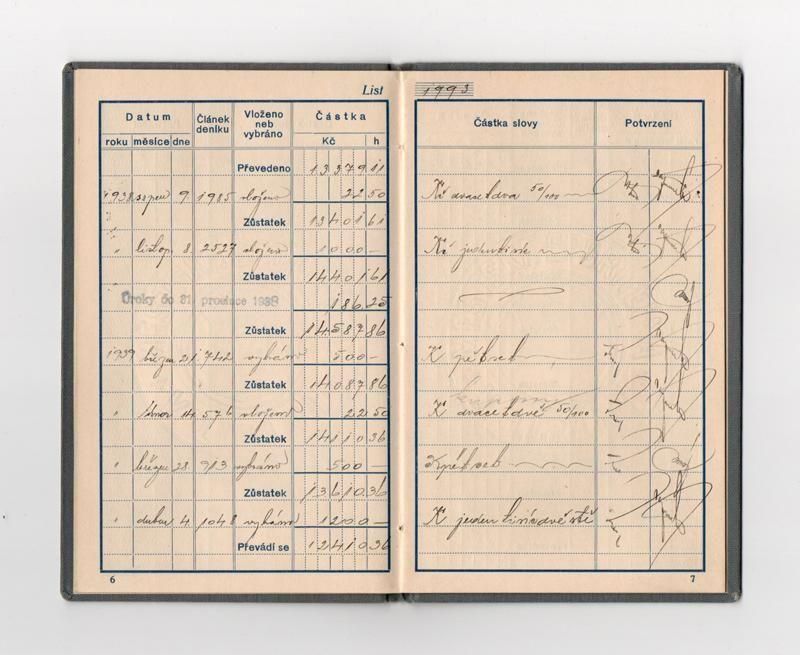 List 1993
Datum Článek deníku Vloženo neb vybráno Částka Částka slovy Potvrzení
roku měsíce dne Kč h
Převedeno 13379 11
1938 srpen 9. 1985 vloženo 22 50 Kč dvacetdva 50/100
Zůstatek 13401 61
" listop. 8. 2527 vloženo 1000 — Kč jedentisíc
Zůstatek 14401 61
Úroky do 31. prosince 1938 186 25
Zůstatek 14587 86
1939 1742 vybráno 500 — K pětset
Zůstatek 14087 86
" únor 14. 576 vloženo 22 50 K dvacetdvě 50/100
Zůstatek 14110 36
" březen 28. 913 vybráno 500 — K pětset
Zůstatek 13610 36
" duben 4. 1048 vybráno 1200 — K jedentisícdvěstě
Převádí se 12410 36
6 7